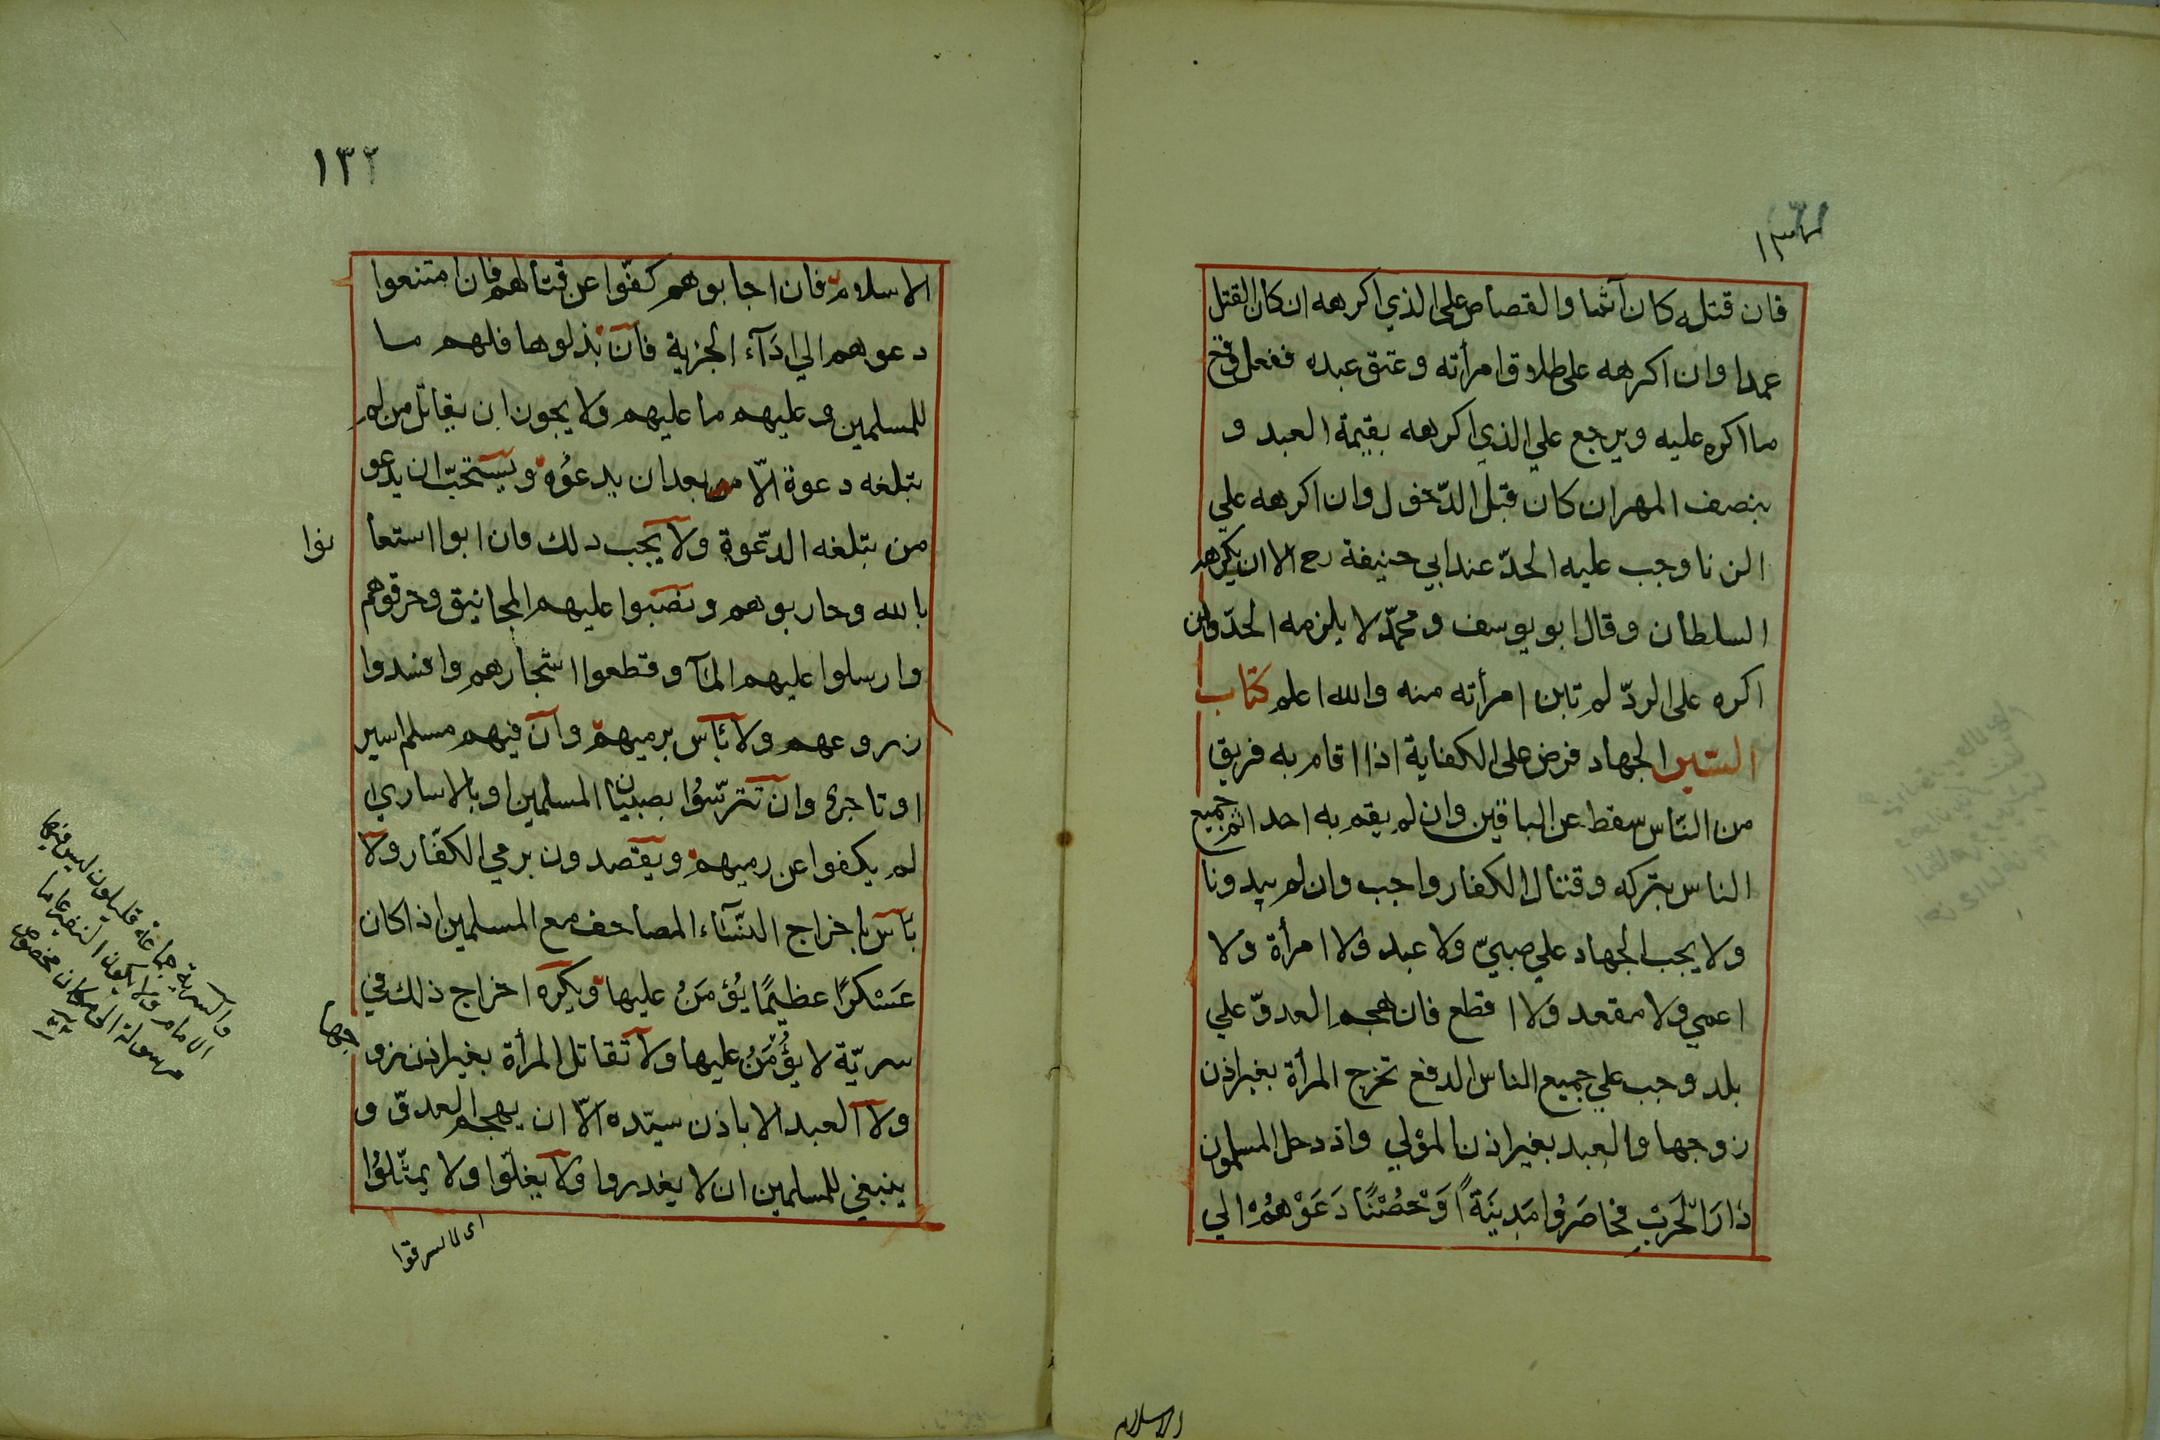 فان قتله كان آثما والقصاص على الذي اكرهه ان كان القتل
عمدا وان اكرهه على طلاق امرأته وعتق عبده ففعل وقع
ما اكره عليه ويرجع علي الذي اكرهه بقيمة العبد و
بنصف المهر ان كان قبل الدّخول وان اكرهه علي
الزنا وجب عليه الحدّ عند ابي حنيفة رح الا ان يكرهه
السلطان وقال ابو يوسف ومحمّد لا يلزمه الحدّ وان
اكره على الردّ لم تابن امرأته منه والله اعلم كتاب
السّير الجهاد فرض على الكفاية اذا اقام به فريق
من النّاس سقط عن الباقين وان لم يقم به احد اثم جميع
الناس بتركه وقتال الكفار واجب وان لم يبدونا
ولا يجب الجهاد علي صبيّ ولا عبد ولا امرأة ولا
اعمي ولا مقعد ولا اقطع فان هجم العدوّ علي
بلد وجب علي جميع الناس الدفع تخرج المرأة بغير اذن
زوجها والعبد بغير اذن المؤلي واذ دحل المسلمون
دَارَ الْحَرَبْ فحَاصَرُوا مَدِينَةً اَوْ حْصُنًا دَعَوْهُمْ الي
الاسلام
١٣٢
الاسلام فان اجابوهم كفّوا عن قتالهم فان امتنعوا
دعوهم الي ادَآء الجزية فان بذلوها فلهم ما
للمسلمين وعليهم ما عليهم ولا يجون ان يقاتل من لم
تبلغه دعوة الّا من بعد ان يدعُوه ويستحبّ ان يدعو
من بتلغه الدّعوة ولا يجب دلك فان ابوا استعا
نوا
بالله وحاربوهم ونصبوا عليهم المجانيق وحرقوهم
وارسلوا عليهم المآ وقطعوا اشجارهم وافسدوا
زروعهم ولا بأس برميهم وان فيهم مسلم اسير
او تاجر وان تترّسُوا بصبيان المسلمين او بالاساري
لم يكفوا عن رميهم ويقصدون برمي الكفّار ولا
بأس باخراج النّسآء المصاحف مع المسلمين اذا كان
عَسْكرًا عظيمًا يُؤمَنُ عليها ويكره اخراج ذلك في
سريّة لا يؤُمَنُ عليها ولا تقاتل المرأة بغير اذن زو
جها
ولا العبد الا باذن سيّده الّا ان يهجم العدوّ و
ينبغي للمسلمين ان لا يغدروا ولا يغلّوا ولا يمثّلوُا
اى لا يسرقوا
والسرية جماعة قليلون ليس فيها
الامام ولا يكون النضر عاما